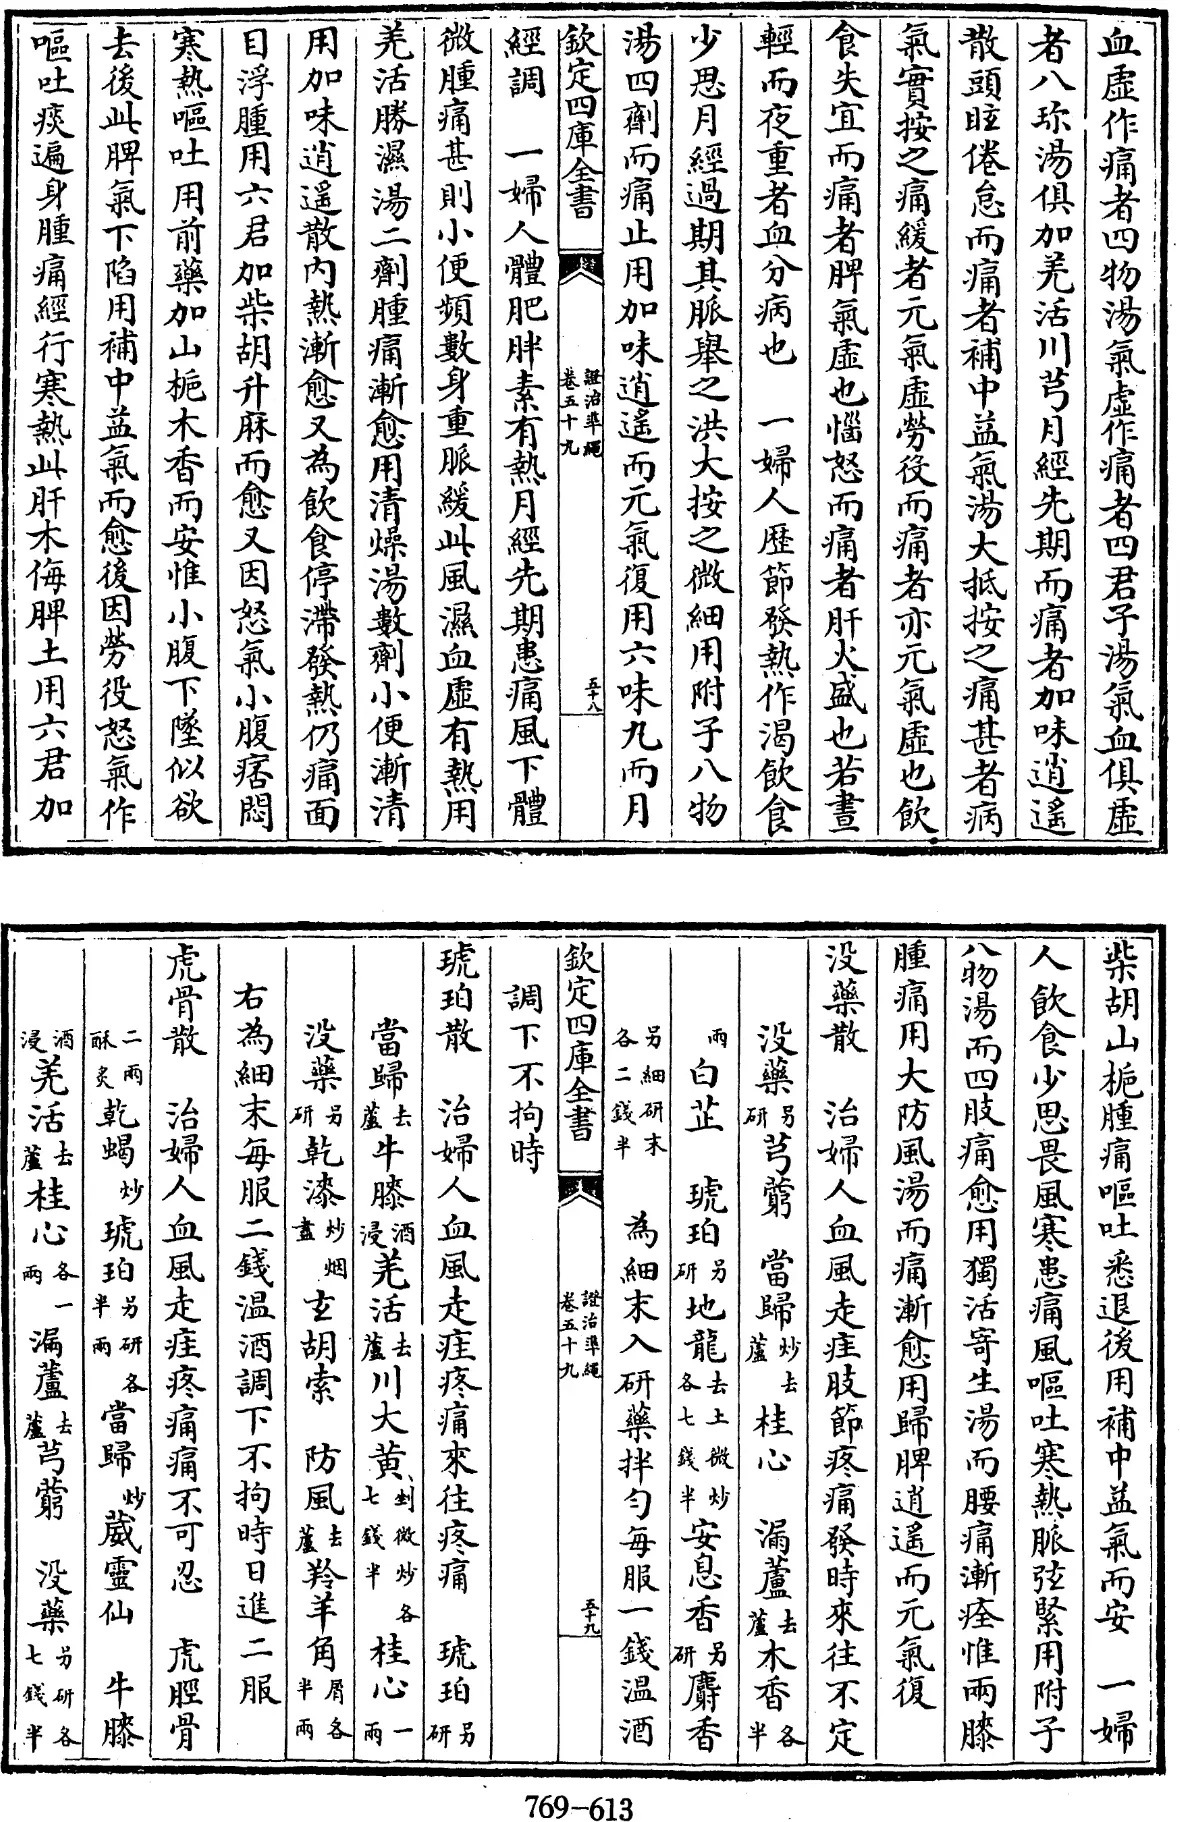 血虛作痛者四物湯氣虛作痛者四君子湯氣血俱虛
者八珍湯俱加羌活川芎月經先期而痛者加味逍遥
散頭眩倦怠而痛者補中益氣湯大抵按之痛甚者病
氣實按之痛緩者元氣虛勞役而痛者亦元氣虛也飲
食失宜而痛者脾氣虛也惱怒而痛者肝火盛也若晝
輕而夜重者血分病也　一婦人歷節發熱作渴飲食
少思月經過期其脈舉之洪大按之微細用附子八物
湯四劑而痛止用加味逍遥而元氣復用六味丸而月
欽定四庫全書　證治準繩　卷五十九　五十八
經調　一婦人體肥胖素有熱月經先期患痛風下體
微腫痛甚則小便頻數身重脈緩此風濕血虛有熱用
羌活勝濕湯二劑腫痛漸愈用清燥湯數劑小便漸清
用加味逍遥散内熱漸愈又為飲食停滯發熱仍痛面
目浮腫用六君加柴胡升麻而愈又因怒氣小腹痞悶
寒熱嘔吐用前藥加山梔木香而安惟小腹下墜似欲
去後此脾氣下陷用補中益氣而愈後因勞役怒氣作
嘔吐痰遍身腫痛經行寒熱此肝木侮脾土用六君加
柴胡山梔腫痛嘔吐悉退後用補中益氣而安　一婦
人飲食少思畏風寒患痛風嘔吐寒熱脈弦緊用附子
八物湯而四肢痛愈用獨活寄生湯而腰痛漸痊惟兩膝
腫痛用大防風湯而痛漸愈用歸脾逍遥而元氣復
没藥散　治婦人血風走疰肢節疼痛發時來往不定
没藥另研芎藭　當歸炒去蘆　桂心　漏蘆去蘆木香各半
兩　白芷　琥珀另研地龍去土微炒各七錢半　安息香另研麝香
另細研末各二錢半　為細末入研藥拌匀每服一錢温酒
欽定四庫全書　證治準繩　卷五十九　五十九
調下不拘時
琥珀散　治婦人血風走疰疼痛來往疼痛　琥珀另研
當歸去蘆牛膝酒浸羌活去蘆川大黄剉微炒各七錢半　桂心一兩
没藥另研乾漆炒烟盡玄胡索　防風去蘆羚羊角屑各半兩
右為細末每服二錢温酒調下不拘時日進二服
虎骨散　治婦人血風走疰疼痛痛不可忍　虎脛骨
二兩酥炙乾蝎炒琥珀另研各半兩　當歸炒威靈仙　牛膝
酒浸羌活去蘆桂心各一兩漏蘆去蘆芎藭　没藥另研各七錢半
769-613